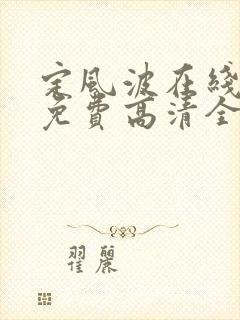 定风波在线
免费高清全
翟丽